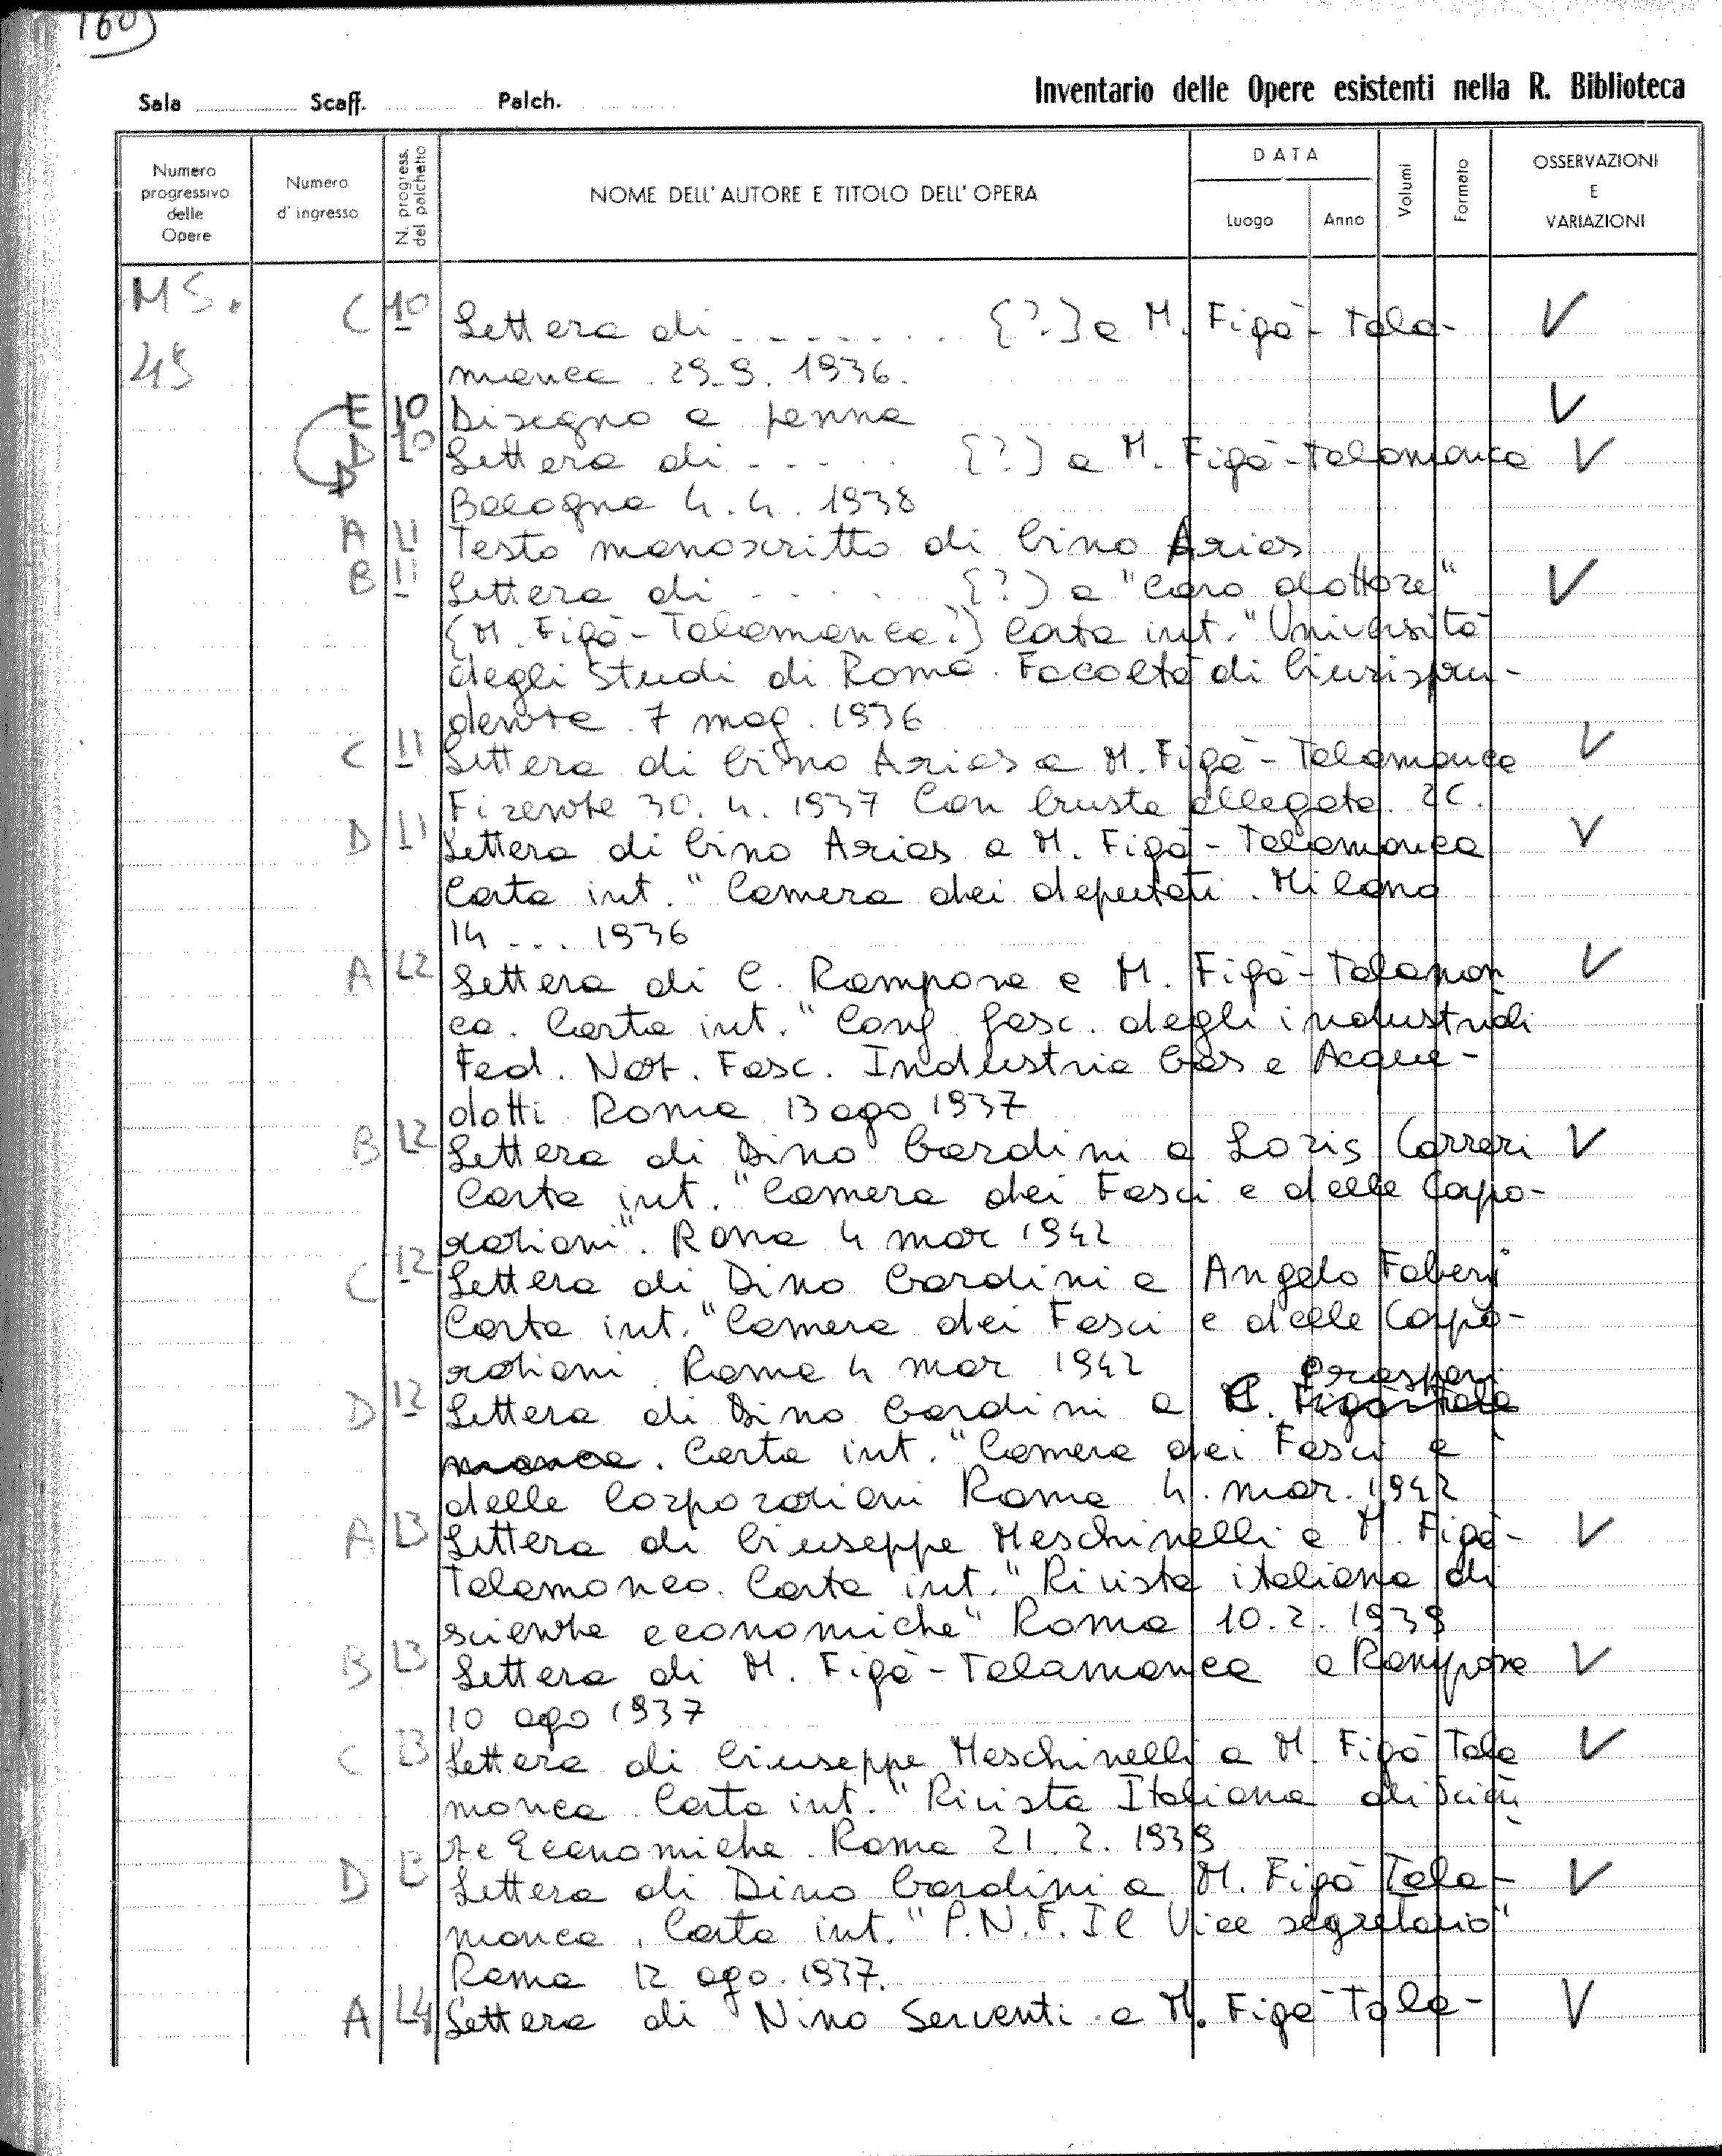 160)
Inventario delle Opere esistenti nella R. Biblioteca
Sala Scaff. Palch.
Numero progressivo delle Opere
Numero d'ingresso
N. progress. del palchetto
NOME DELL'AUTORE E TITOLO DELL'OPERA
DATA
Luogo
Anno
Volumi
Formato
OSSERVAZIONI E VARIAZIONI
MS. C 10 Lettera di ....... [?] a M. Figà-Tala- V
45 manca. 29.9.1936.
E 10 Disegno a penna V
D 10 Lettera di ..... [?] a M. Figà-Talamanca V
D Bologna 4.4.1938
A 11 Testo manoscritto di Gino Arias
B 11 Lettera di ..... [?] a "Caro dottore" V
[M. Figà-Talamanca?] Carta int. "Università
degli Studi di Roma. Facoltà di Giurispru-
denza. 7 mag. 1936
C 11 Lettera di Gino Arias a M. Figà-Talamanca V
Firenze 30.4.1937 Con busta allegata. 2C.
D 11 Lettera di Gino Arias a M. Figà-Talamanca V
Carta int. "Camera dei deputati. Milano
14 ... 1936
A 12 Lettera di C. Rampone a M. Figà-Talaman V
ca. Carta int. "Conf. fasc. degli industriali
Fed. Naz. Fasc. Industria Gas e Acque-
dotti Roma 13 ago 1937
B 12 Lettera di Dino Gardini a Loris Carreri V
Carta int. "Camera dei Fasci e delle Corpo-
razioni". Roma 4 mar 1942
C 12 Lettera di Dino Gardini a Angelo Faberj
Carta int. "Camera dei Fasci e delle Corpo-
razioni. Roma 4 mar 1942
Prosperi
D 12 Lettera di Dino Gardini a C. Figà-Tala
manca. Carta int. "Camera dei Fasci e
delle Corporazioni Roma 4. mar. 1942
A 13 Lettera di Giuseppe Meschinelli a M. Figà- V
Talamanca. Carta int. "Rivista italiana di
scienze economiche" Roma 10.2.1939
B 13 Lettera di M. Figà-Talamanca a Rampone V
10 ago 1937
C 13 Lettera di Giuseppe Meschinelli a M. Figà Tala V
manca. Carta int. "Rivista Italiana di Scien
ze Economiche. Roma 21.2.1939
D 13 Lettera di Dino Gardini a M. Figà Tala- V
manca. Carta int. "P.N.F. Il Vice segretario"
Roma 12 ago. 1937.
A 14 Lettera di Nino Serventi a M. Figà Tala- V